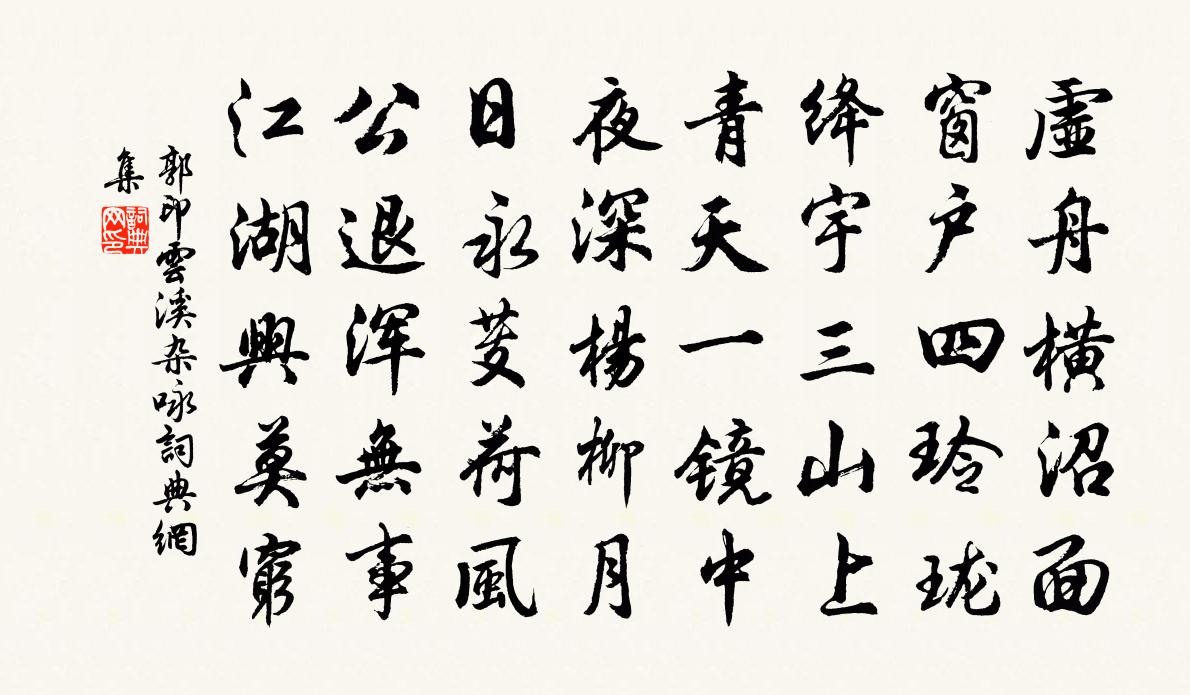 虛舟橫沼面
窗户四玲珑
绛宇三山上
青天一镜中
夜深楊柳月
日永芰荷風
公退浑無事
江湖興莫窮
郭印雲溪杂咏詞典網
集
詞典
网印